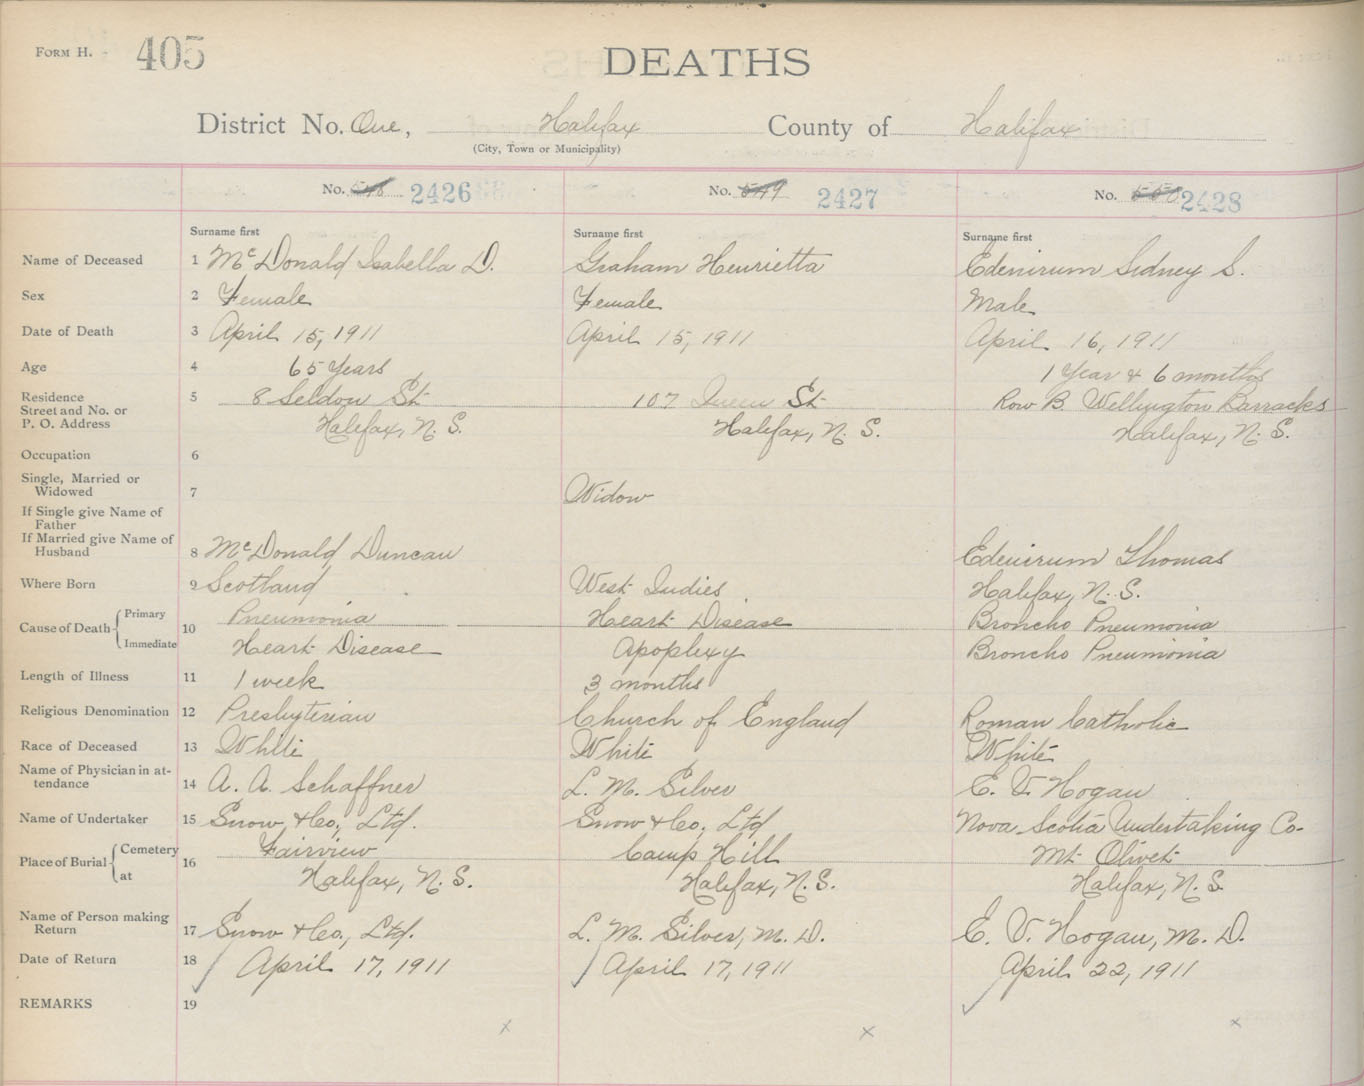 FORM H. 405
DEATHS
District No. One, Halifax County of Halifax
(City, Town or Municipality)
No. 548 2426 No. 549 2427 No. 550 2428
Surname first Surname first Surname first
Name of Deceased 1 McDonald Isabella D. Graham Henrietta Edenirum Sidney S.
Sex 2 Female Female Male
Date of Death 3 April 15, 1911 April 15, 1911 April 16, 1911
Age 4 65 Years 1 Year & 6 months
Residence
Street and No. or
P. O. Address 5 8 Seldon St. 107 Queen St. Row B. Wellington Barracks
Halifax, N. S. Halifax, N. S. Halifax, N. S.
Occupation 6
Single, Married or
Widowed 7 Widow
If Single give Name of
Father
If Married give Name of
Husband 8 McDonald, Duncan Edenirum Thomas
Where Born 9 Scotland West Indies Halifax, N. S.
Cause of Death Primary 10 Pneumonia Heart Disease Broncho Pneumonia
Immediate Heart Disease Apoplexy Broncho Pneumonia
Length of Illness 11 1 week 3 months
Religious Denomination 12 Presbyterian Church of England Roman Catholic
Race of Deceased 13 White White White
Name of Physician in at-
tendance 14 A. A. Schaffner L. M. Silver E. V. Hogan
Name of Undertaker 15 Snow & Co., Ltd. Snow & Co., Ltd Nova Scotia Undertaking Co-
Place of Burial Cemetery 16 Fairview Camp Hill Mt. Olivet
at Halifax, N. S. Halifax, N.S. Halifax, N.S.
Name of Person making
Return 17 Snow & Co., Ltd. L. M. Silver, M. D. E. V. Hogan, M. D.
Date of Return 18 April 17, 1911 April 17, 1911 April 22, 1911
REMARKS 19
x x x